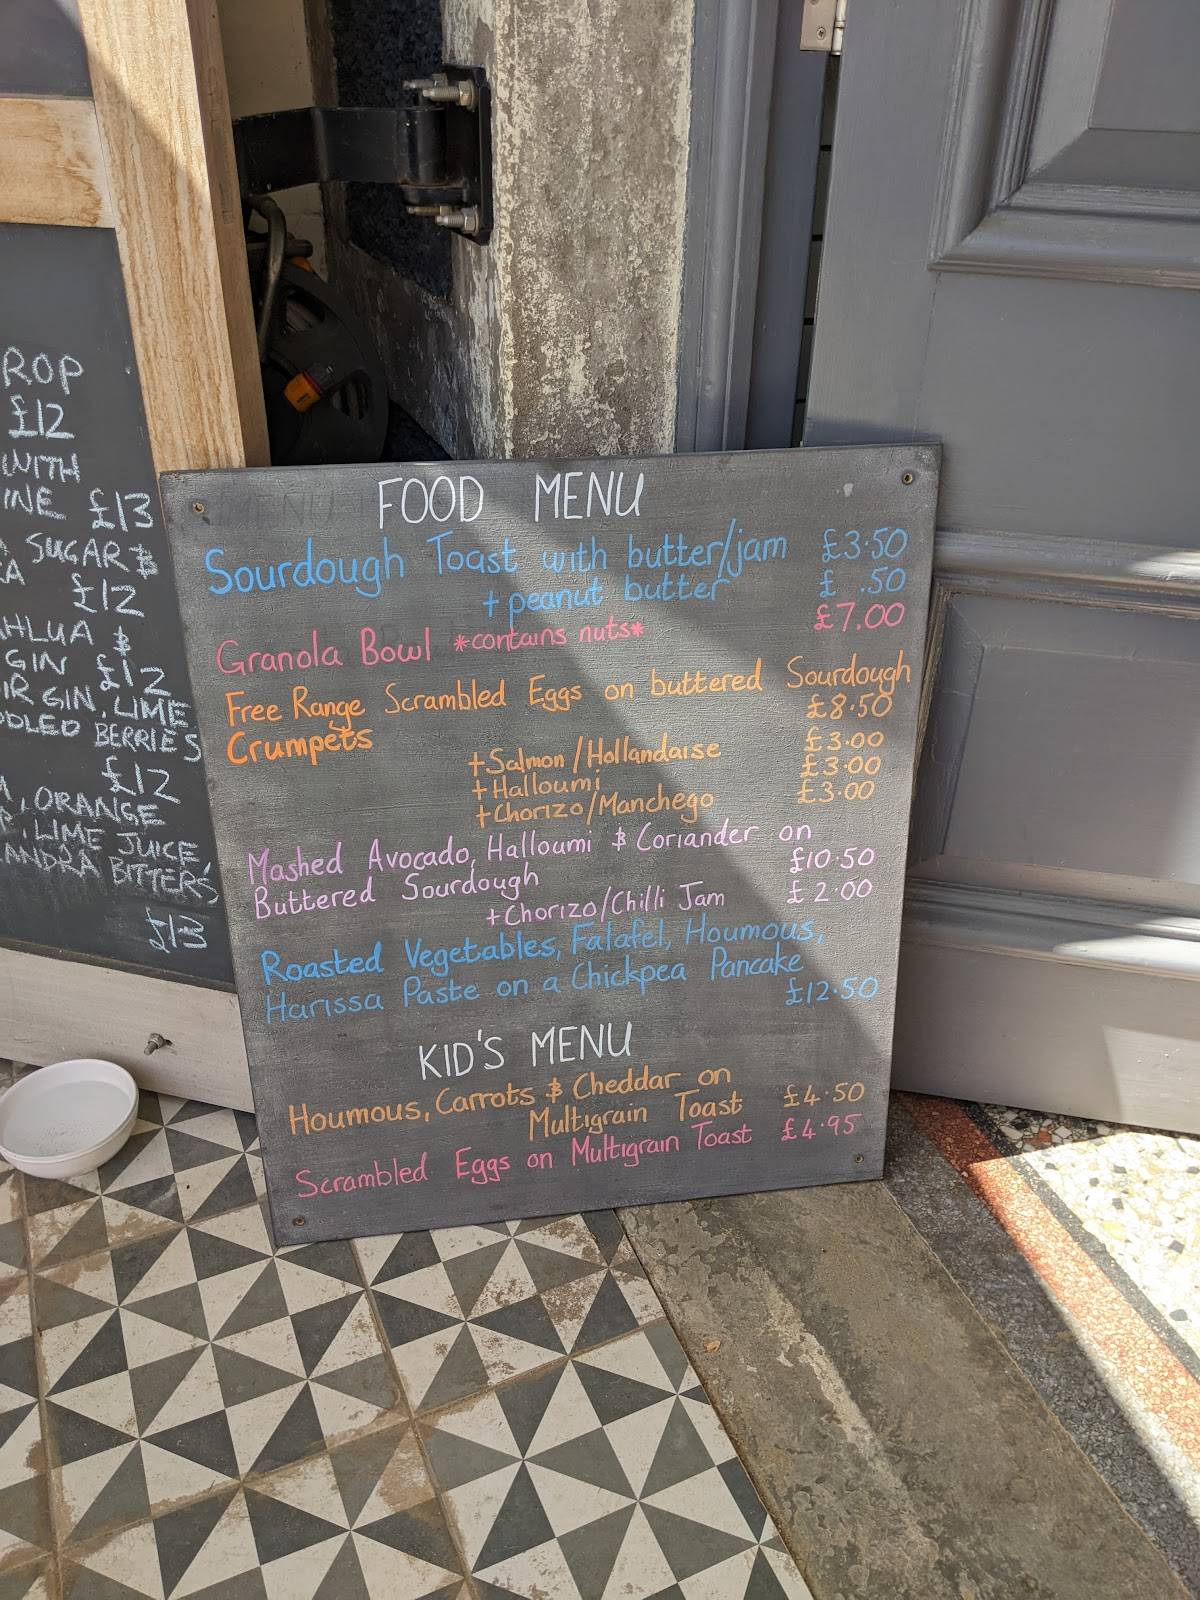 ROP
£12
WITH
INE £13
SUGAR &
£12
AHLUA &
GIN £12
GIN, LIME
BERRIES
£12
, ORANGE
LIME JUICE,
BITTERS
£13
FOOD MENU
Sourdough Toast with butter/jam £3.50
+ peanut butter £ .50
Granola Bowl *contains nuts* £7.00
Free Range Scrambled Eggs on buttered Sourdough
Crumpets £8.50
+Salmon/Hollandaise £3.00
+Halloumi £3.00
+Chorizo/Manchego £3.00
Mashed Avocado, Halloumi & Coriander on
Buttered Sourdough £10.50
+Chorizo/Chilli Jam £2.00
Roasted Vegetables, Falafel, Houmous,
Harissa Paste on a Chickpea Pancake
£12.50
KID'S MENU
Houmous, Carrots & Cheddar on
Multigrain Toast £4.50
Scrambled Eggs on Multigrain Toast £4.95